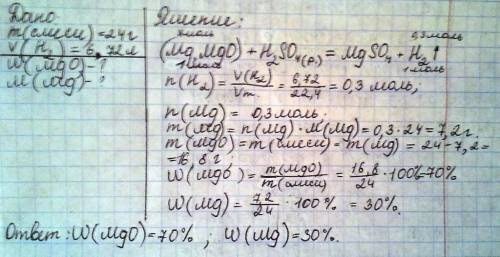 Дано
m(смеси)=24г
V(H₂)=6,72л
W(MgO)-?
M(Mg)-?
Решение:
xмоль 0,3 моль
(Mg,MgO)+H₂SO₄(р.)=MgSO₄+H₂↑
1моль 1моль
n(H₂)=V(H₂)/Vm=6,72/22,4=0,3 моль,
n(Mg)=0,3моль.
m(Mg)=n(Mg)·M(Mg)=0,3·24=7,2г.
m(MgO)=m(смеси)-m(Mg)=24-7,2=
=16,8г,
W(MgO)=m(MgO)/m(смеси)=16,8/24·100%=70%
W(Mg)=7,2/24·100%=30%.
Ответ:W(MgO)=70%; W(Mg)=30%.